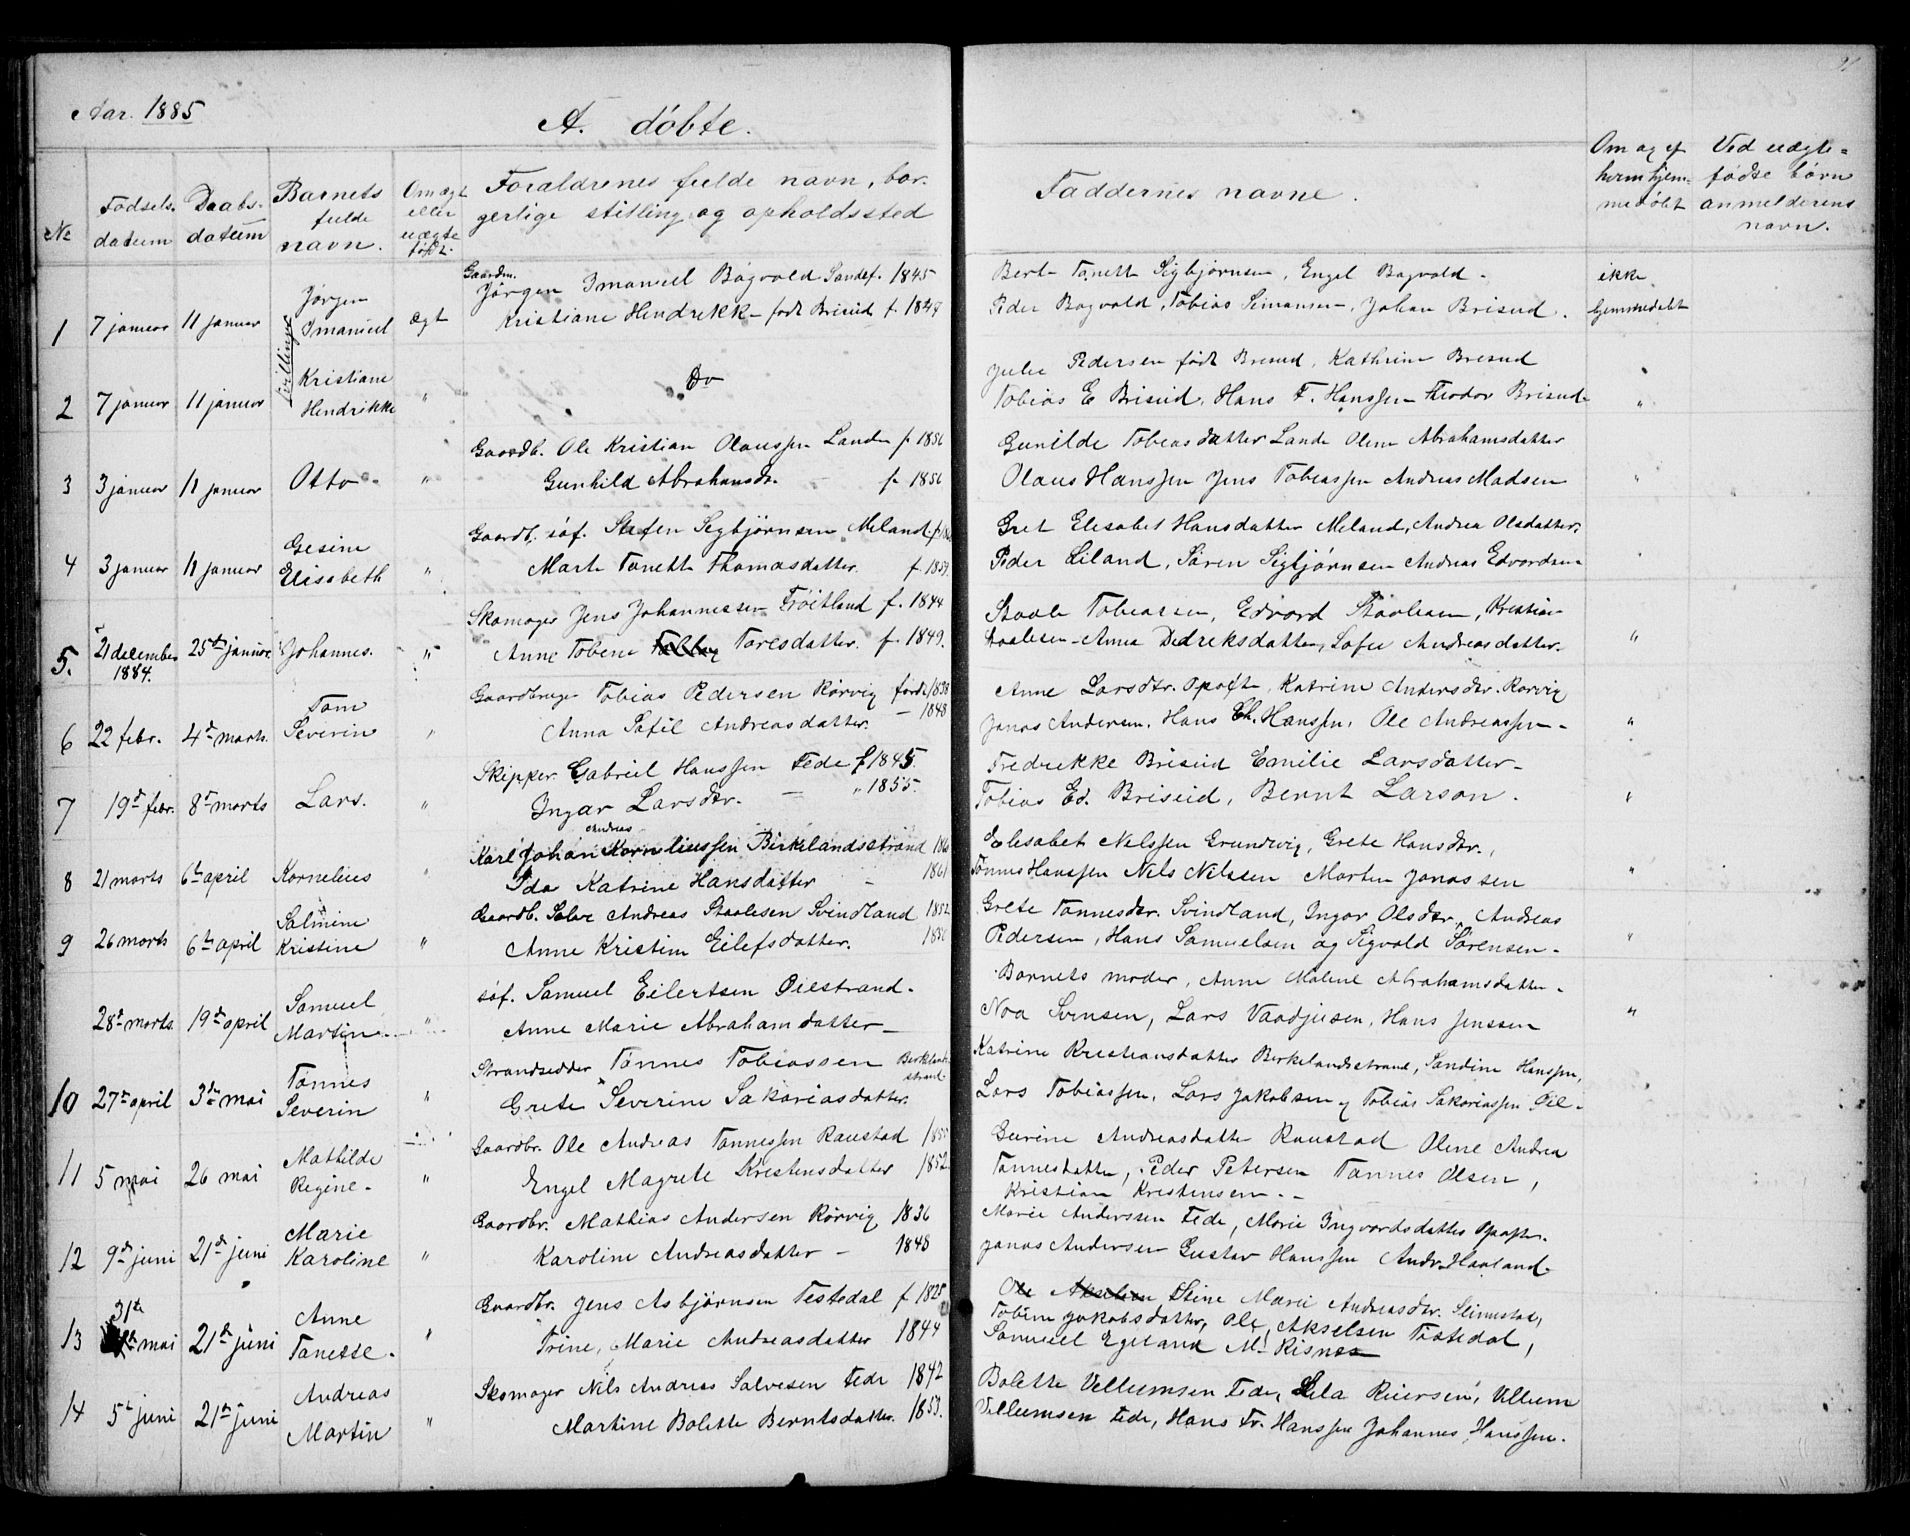 Aar. 1885
A. döbte.
№
Födsels-
datum
Daabs-
datum
Barnets
fulde
navn.
Om ægt
eller
uægte
födt.
Foraldrenes fulde navn, bor-
gerlige stilling og opholdssted
Faddernes navne.
Om og ef
hvem hjem-
medöbt
Ved uægte-
födte börn
anmelderens
navn.
1
7 januar
11 januar
tvillinger
Jörgen
Imanuel
ægt
Gaardm.
Jörgen Imanuel Bagvold Sandef. 1845
Kristiane Hendrikk- födt Brisud f. 1849
Bert Tanett Sigbjörnsen, Engel Bagvold -
Peder Bagvold, Tobias Simonsen, Johan Brisud.
ikke
hjemmedöbt
2
7 januar
11 januar
Kristiane
Hendrikke
"
Do
Julie Pedersen födt Bresud, Kathrine Bresud
Tobias E Brisud, Hans F. Hanssen Theodor Brisud
"
3
3 januar
11 januar
Otto
"
Gaardb. Ole Kristian Olaussen Lande f 1856
Gunhild Abrahamsdr. f 1856
Gunilde Tobiasdatter Lande Olene Abrahamsdatter
Olaus Hanssen Jens Tobiassen Andreas Madsen
"
4
3 januar
11 januar
Gesine
Elisabeth
"
Gaardb. söf. Stefen Sigbjörnsen Meland f
Marte Tanette Thomasdatter. f. 1859
Gret Elisabet Hansdatter Meland, Andrea Olsdatter,
Peder Liland, Sören Sigbjörnsen Andreas Edvardsen
5.
21 december
1884.
25de januar
Johannes.
"
Skomager Jens Johannessen Fröitland f. 1844
Anne Tobene Taresdatter. f. 1849.
Staale Tobiassen, Edvard Staalesen, Kristian
Staalesen - Anna Didreksdatter, Sofie Andreasdatter.
"
6
22 febr.
4de marts.
Tom
Severin
"
Gaardbruger Tobias Pedersen Rörvig födt 1838
Anna Sofil Andreasdatter. - 1848
Anne Larsdtr. Opoft, Katrine Andersdtr. Rorvig
Jonas Andersen, Hans Ch. Hanssen, Ole Andreassen -
"
7
19de febr.
8de marts
Lars.
"
Skipper Gabriel Hanssen Fede f 1845.
Ingar Larsdtr. - " 1855.
Fredrikke Brisud Emilie Larsdatter -
Tobias Ed. Brisuid, Bernt Larson.
"
8
21 marts
6te april
Kornelius
"
Andreas
Karl Johan Korneliussen Birkelandsstrand 186
Ida Katrine Hansdatter - 1861
Elesabet Nelssen Grundvig, Grete Hansdtr.,
Tönnes Hanssen Nels Nelssen Morten Jonassen
"
9
26 marts
6te april
Salmine
Kristine
"
Gaardb. Salve Andreas Staalesen Svindland 1852
Anne Kristine Eilefsdatter.
Grete Tannesdtr. Svindland, Ingar Olsdtr, Andreas
Pedersen, Hans Samuelsen og Sigvald Sörensen -
"
28de marts.
19de april
Samuel
Martin.
"
söf. Samuel Eilertsen Öiestrand.
Anne Marie Abrahamdatter -
Barnets moder, Anne Malene Abrahamsdatter.
Noa Svensen, Lars Vaadjusen, Hans Jenssen
"
10
27de april
3de mai
Tönnes
Severin
"
Strandsedder Tönnes Tobiassen Birklands
strand
Grete Severine Sakariasdatter.
Katrine Kristiansdatter Birkelandsstrand, Sandine Hanssen,
Lars Tobiassen, Lars Jakobsen og Tobias Sakariassen Öie-
11
5 mai
26 mai
Mathilde
Regine.
"
Gaardbr. Ole Andreas Tannessen Raustad
Engel Magrete Kristensdatter 1852
Gurine Andreasdatter Raustad Olene Andrea
Tannesdatter, Peder Petersen Tannes Olsen,
Kristian Kristensen. -
12
9de juni
21de juni
Marie
Karoline
"
Gaardbr. Mathias Andersen Rörvig 1836
Karoline Andreasdatter - 1848
Marie Anderssen Fede, Marie Ingvardsdatter Opofte.
Jonas Andersen Gustav Hanssen Andr. Haaland.
13
31te
mai
21de juni
Anne
Tanesse.
"
Gaardbr. Jens Asbjörnsen Testedal f 1825
Trine, Marie Andreasdatter 1844
Ole Akselsen Stine Marie Andreasdtr. Slimestad,
Tobine Jakobsdatter, Ole Akselsen Tistedal,
Samuel Egeland M. Risnes
14
5te juni
21de juni
Andreas
Martin
"
Skomager Nils Andreas Salvesen Fede 1842
Martine Bolette Berntsdatter. 1853.
Bolette Vellumsen Fede, Lela Reiersen, Vllum
Vellumsen Fede, Hans Fr. Hanssen Johannes Hanssen.